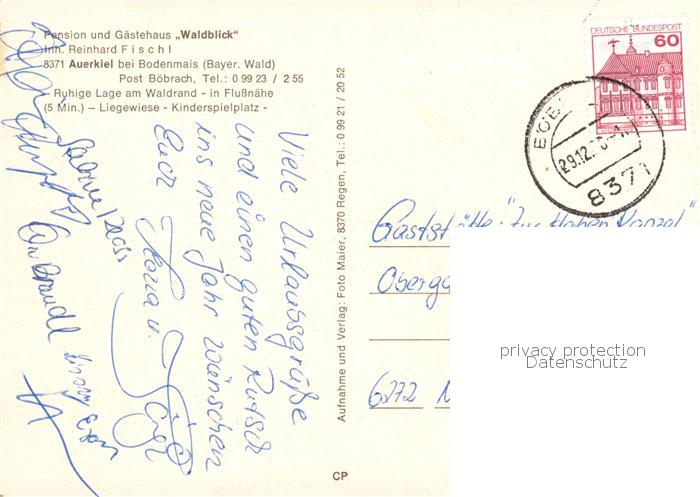 Pension und Gästehaus „Waldblick"
Inh. Reinhard Fischl
8371 Auerkiel bei Bodenmais (Bayer. Wald)
Post Böbrach, Tel.: 0 99 23 / 2 55
Ruhige Lage am Waldrand - in Flußnähe
(5 Min.) – Liegewiese - Kinderspielplatz -
Viele Urlaubsgrüße
und einen guten Rutsch
ins neue Jahr wünschen
Euch
Aufnahme und Verlag: Foto Maier, 8370 Regen, Tel.: 0 99 21 / 20 52
CP
DEUTSCHE BUNDESPOST
60
29.12.
8371
Gaststätte "Zur Hohen Kanzel"
Oberg
6272 N
privacy protection
Datenschutz